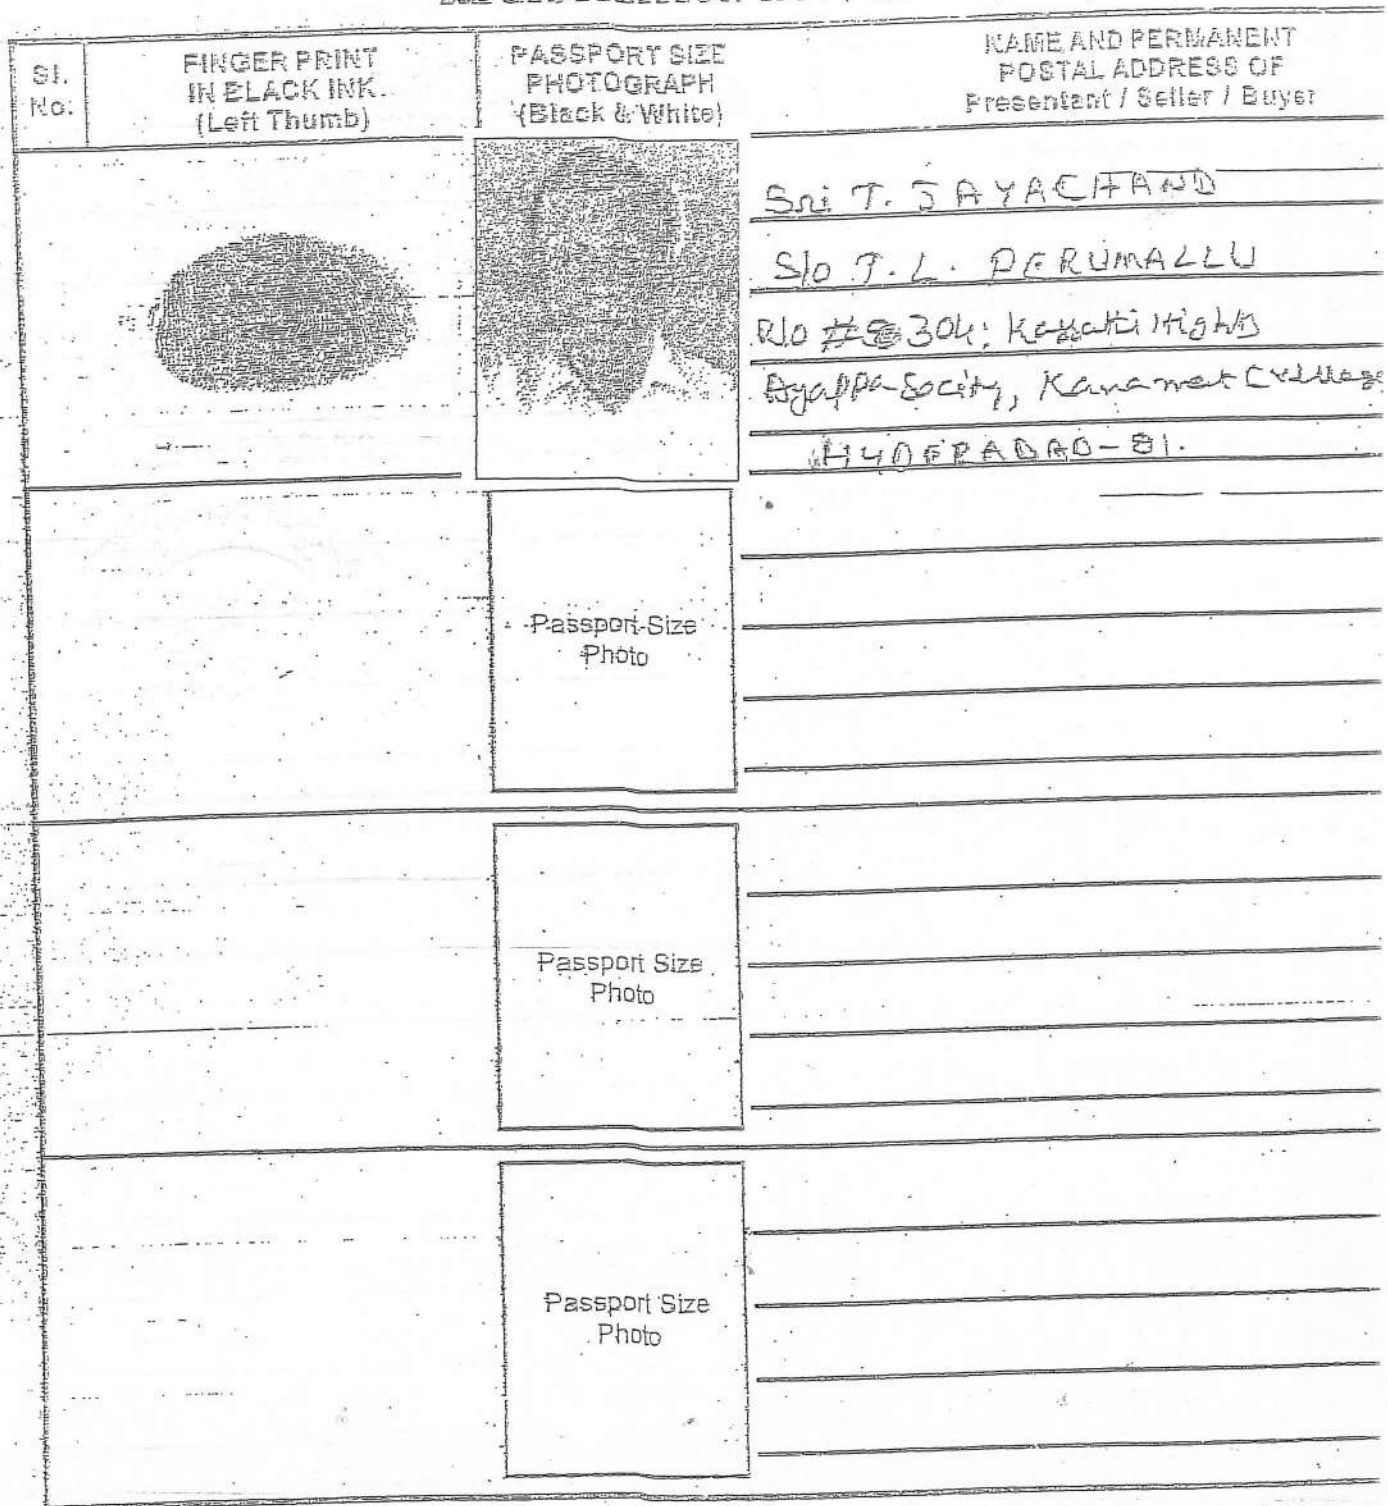 Sl.
No.
FINGER PRINT
IN BLACK INK.
(Left Thumb)
PASSPORT SIZE
PHOTOGRAPH
(Black & White)
NAME AND PERMANENT
POSTAL ADDRESS OF
Presentant / Seller / Buyer
Sri T. JAYACHAND
S/o T. L. PERUMALLU
R/o # 304; Hights
Ayappa Socity,
HYDERABAD-81.
Passport Size
Photo
Passport Size
Photo
Passport Size
Photo